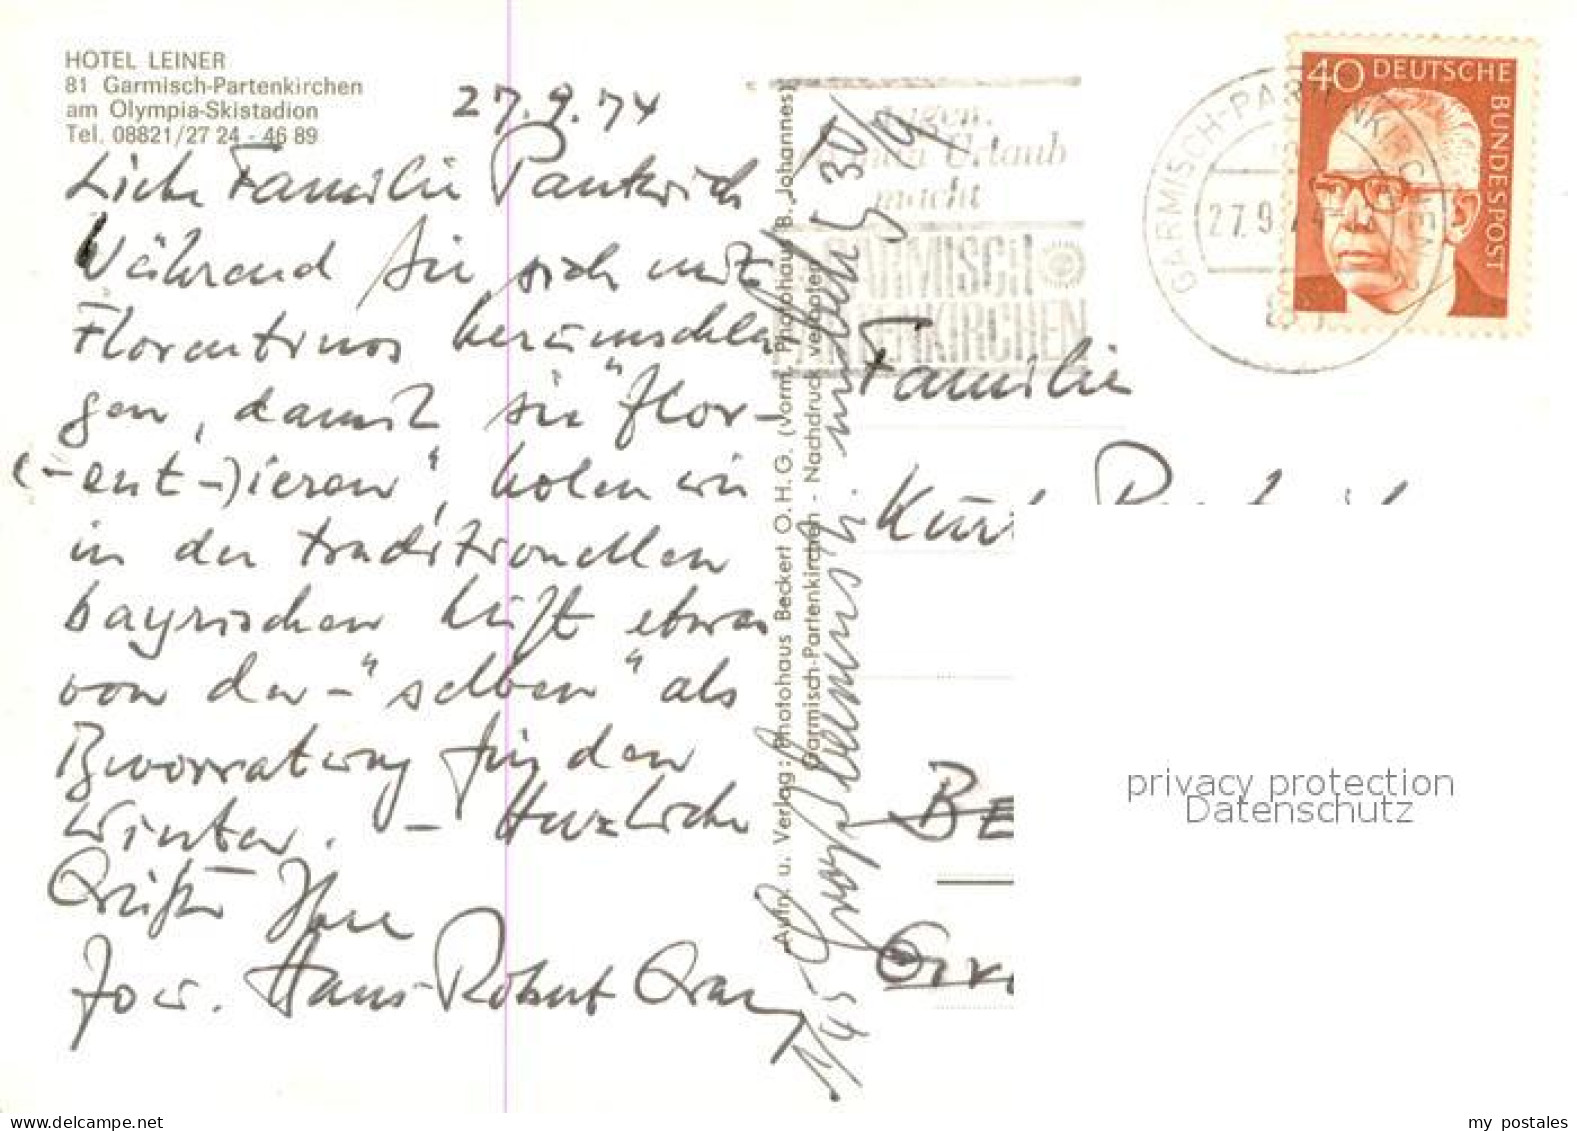 HOTEL LEINER
81 Garmisch-Partenkirchen
am Olympia-Skistadion
Tel. 08821/27 24 - 46 89
27.9.74
Liebe Familie Pankwich
Während Sie sich mit
Florentinos herumschla
gen, damit sie "Flor-
(-ent-)ieren", holen wir
in der traditionellen
bayrischen Luft etwas
von der-"selben" als
Bevorratung für den
Winter. - Herzliche
Grüße Ihre
Jo u. Hans-Robert
Aufn. u. Verlag: Photohaus Beckert O.H.G. (vorm. Photohaus B. Johannes)
Garmisch-Partenkirchen - Nachdruck verboten
1/45
30/9
Urlaub
macht
GARMISCH
PARTENKIRCHEN
GARMISCH-PARTENKIRCHEN
27.9.74
40 DEUTSCHE
BUNDESPOST
Familie
Kurt
BE
privacy protection
Datenschutz
my postales